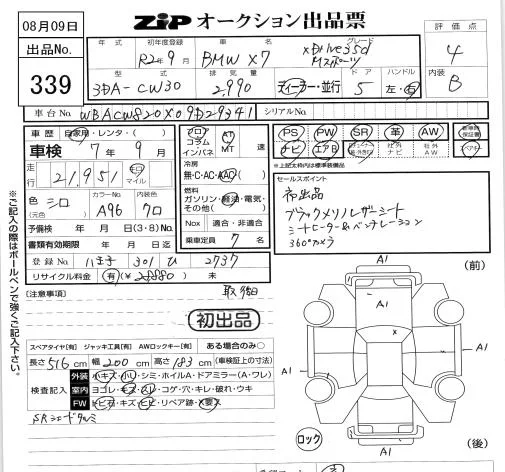 08月09日
ZIP オークション出品票
出品No.
339
年式 初年度登録 車名 グレード
R2年9月 BMW X7 xDrive35d
Mスポーツ
評価点
4
型式 排気量 ドア ハンドル
3DA-CW30 2,990 ディーラー・並行 5 左・右
内装
B
車台No. WBACW820X09D29341 シリアルNo.
車歴 自家用・レンタ・( )
車検 7年9月
走行 21,951 キロ マイル
色 シロ (元色) カラーNo. A96 クロ
予備検 年 月 日(3・8)No.
書類有効期限 年 月 日迄
登録No. 301 ひ 2737
リサイクル料金 有(¥ ) 未
フロア コラム インパネ AT MT 速
冷房
無・C・AC・AAC
燃料
ガソリン・軽油・電気・その他( )
Nox 適合・非適合
乗車定員 7 名
PS PW SR 革 AW 新車時保証書
ナビ エアB 社外ナビ 社外AW
※上記太枠内は標準装備品
セールスポイント
初出品
ブラックメリノレザーシート
シートヒーター&ベンチレーション
360°カメラ
※ご記入の際はボールペンで強くご記入下さい。
[注意事項] 取説
初出品
スペアタイヤ[有] ジャッキ工具[有] AWロックキー[有] ある場合のみ○
長さ 516 cm 幅 200 cm 高さ 183 cm (車検証上の寸法)
検査記入
外装 小キズ・凹・シミ・ホイルA・ドアミラー(A・ワレ)
室内 ヨゴレ・キズ・スレ・コゲ・穴・キレ・破れ・ウキ
FW トビ石・キズ・ヒビ・リペア跡・X要
A1 (前)
A1
x
A1 A1
A1
ロック A1 (後)